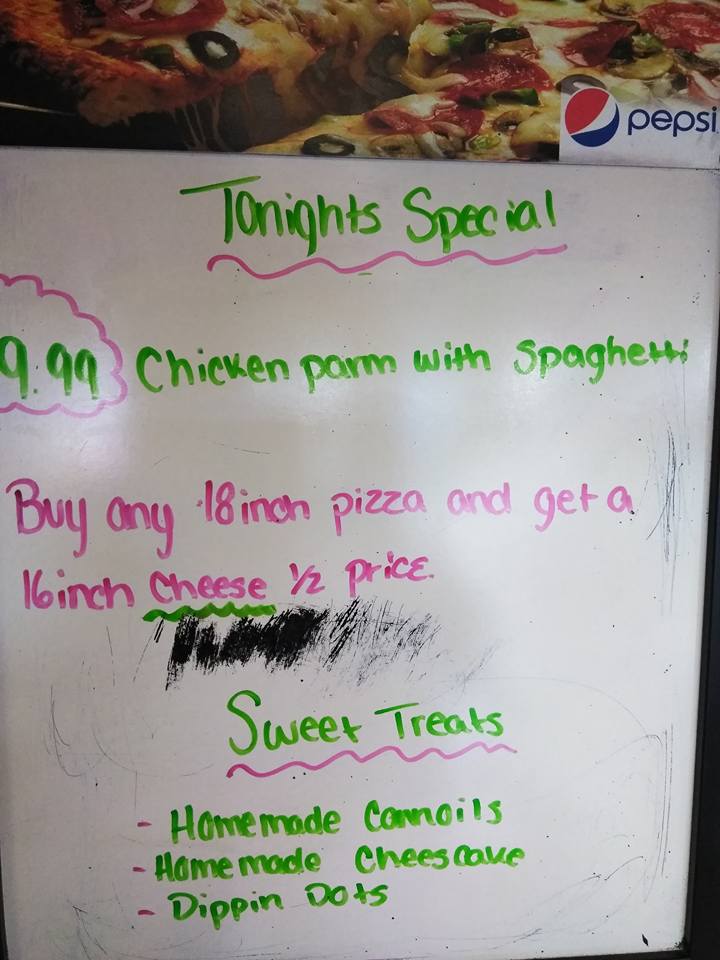 pepsi
Tonights Special
9.99 Chicken parm with Spaghetti
Buy any 18inch pizza and get a
16inch Cheese 1/2 price.
Sweet Treats
- Homemade Cannoils
- Homemade Cheescake
- Dippin Dots